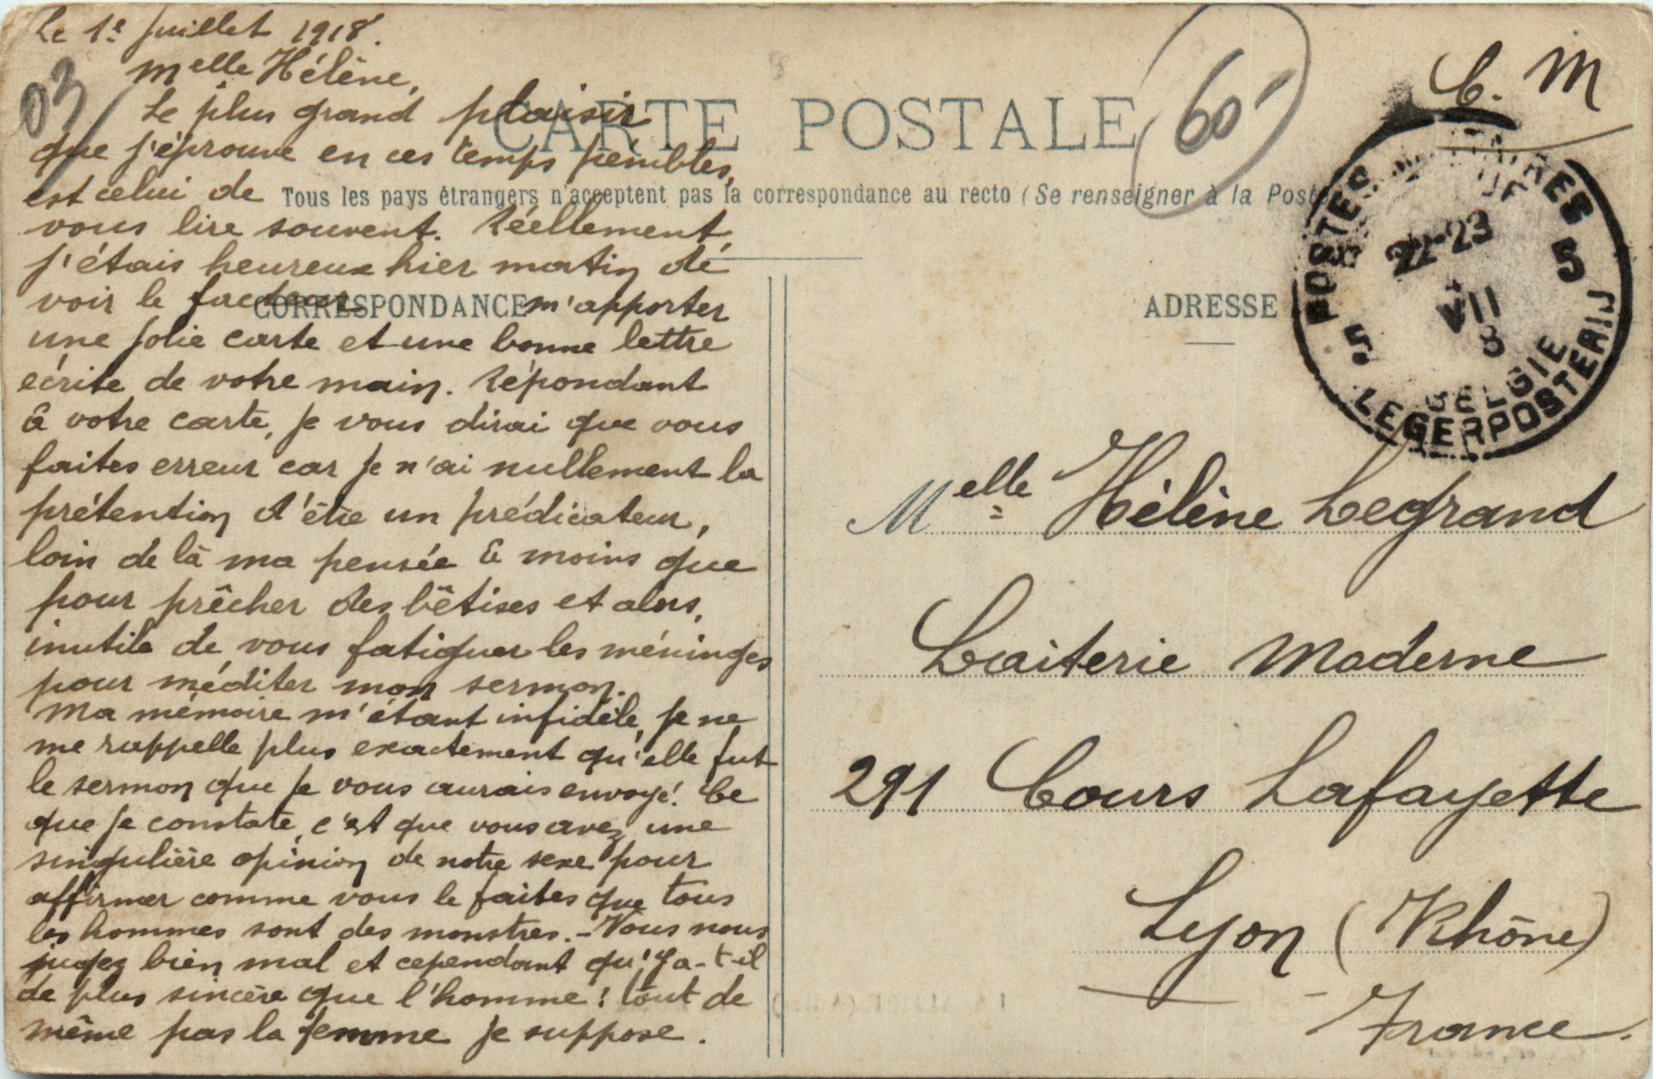 Le 1er Juillet 1918.
Melle Hélène,
Le plus grand plaisir
que j'éprouve en ces temps pénibles,
est celui de
vous lire souvent. Réellement,
j'étais heureux hier matin de
voir le facteur m'apporter
une jolie carte et une bonne lettre
écrite de votre main. Répondant
à votre carte, je vous dirai que vous
faites erreur car je n'ai nullement la
prétention d'être un prédicateur,
loin de là ma pensée à moins que
pour prêcher des bêtises et alors,
inutile de vous fatiguer les méninges
pour méditer mon sermon.
Ma mémoire m'étant infidèle, je ne
me rappelle plus exactement qu'elle fut
le sermon que je vous aurais envoyé. Ce
que je constate, c'est que vous avez une
singulière opinion de notre sexe pour
affirmer comme vous le faites que tous
les hommes sont des monstres. - Vous nous
jugez bien mal et cependant qu'y a-t-il
de plus sincère que l'homme! tout de
même pas la femme je suppose.
03
CARTE POSTALE
60-
Tous les pays étrangers n'acceptent pas la correspondance au recto (Se renseigner à la Poste
CORRESPONDANCE
ADRESSE
C. M
POSTES MILITAIRES
BELGIQUE
22-23
VII
8
5 5
BELGIE
LEGERPOSTERIJ
Melle Hélène Legrand
Laiterie Moderne
291 Cours Lafayette
Lyon (Rhône)
France.